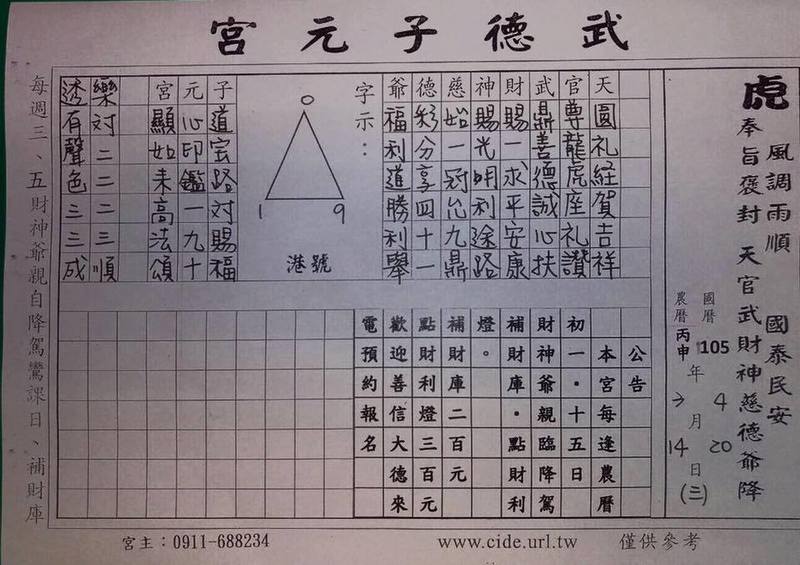 武德子元宮
虎
風調雨順 國泰民安
奉旨褒封 天官武財神慈德爺降
國曆 105年4月20日(三)
農曆丙申 3月14日
天圓礼經賀吉祥
官尊龍虎座礼讚
武鼎善德誠心扶
財賜一求平安康
神賜光明利途路
慈始一冠九鼎
德彩分享四十一
爺福利道勝利舉
字示：
0
1 9
港號
子道宝路対賜福
元心印鑑一九十
宮顯如来高法頌
樂対二二二三順
透有聲色三三成
公告
本宮每逢農曆
初一．十五日
財神爺親臨降駕
補財庫．點財利
燈。
補財庫二百元
點財利燈三百元
歡迎善信大德來
電預約報名
每週三、五財神爺親自降駕鸞課日、補財庫
宮主：0911-688234
www.cide.url.tw
僅供參考